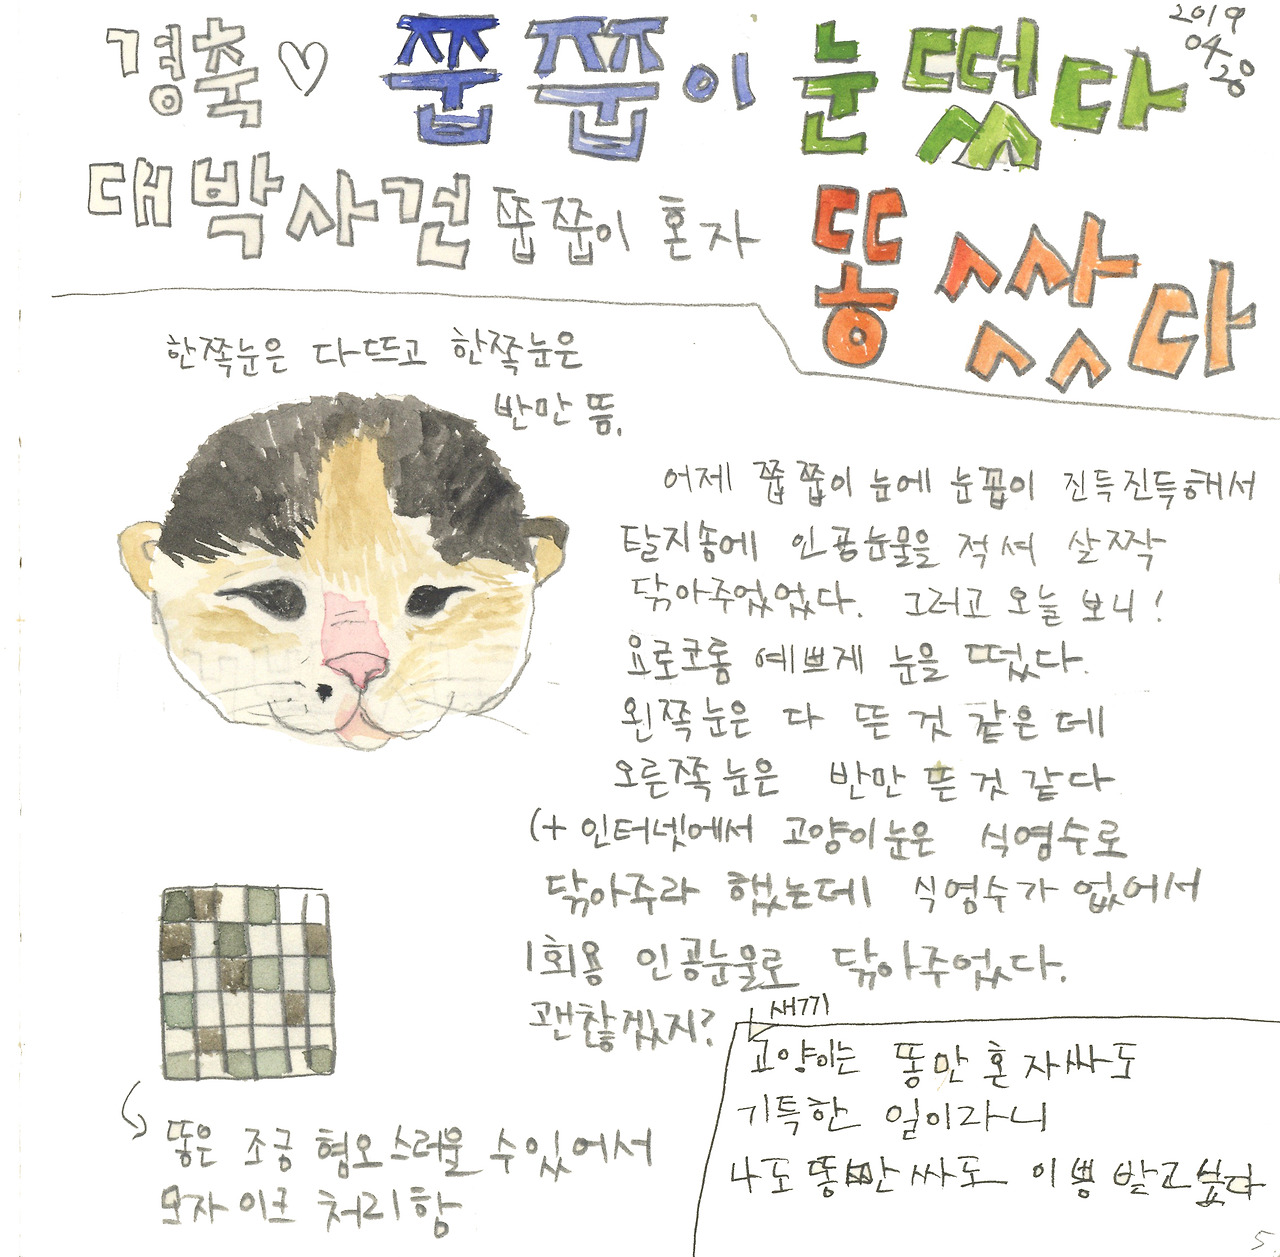 2019
04
28
경축♡ 쭌쭌이 눈떴다
대박사건 쭙쭙이 혼자 똥쌌다
한쪽눈은 다뜨고 한쪽눈은
반만 뜸.
어제 쭙쭙이 눈에 눈꼽이 진득진득해서
탈지솜에 인공눈물을 적셔 살짝
닦아주었었다. 그러고 오늘 보니!
요로코롬 예쁘게 눈을 떴다.
왼쪽눈은 다 뜬 것 같은데
오른쪽눈은 반만 뜬것 같다
(+ 인터넷에서 고양이눈은 식염수로
닦아주라 했는데 식염수가 없어서
1회용 인공눈물로 닦아주었다.
괜찮겠지?
똥은 조금 혐오스러울 수있어서
모자이크 처리함
새끼
고양이는 똥만 혼자싸도
기특한 일이라니
나도 똥만 싸도 이쁨 받고싶다
5